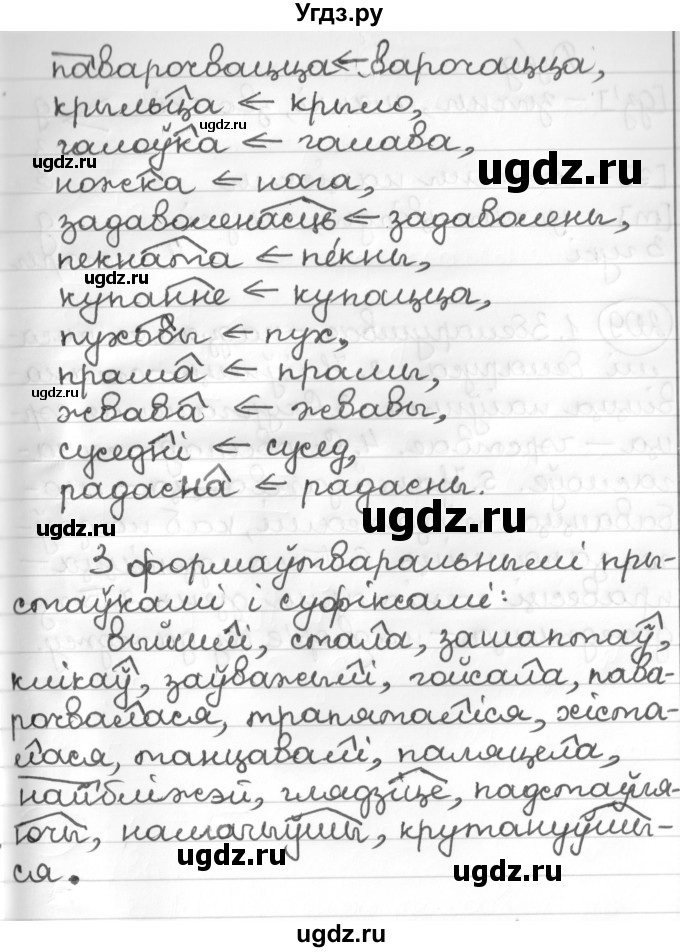 Угдз.ру
паварочвацца ← варочацца,
крыльца ← крыло,
ugdz.ru
галоўка ← галава,
ugdz.ru
ugdz.ru
ножка ← нага,
задаволенасць ← задаволены,
пекната ← пекны,
ugdz.ru
купанне ← купацца,
пухавы ← пух,
прама ← прамы,
ugdz.ru
жвава ← жвавы,
суседні ← сусед,
радасна ← радасны.
ugdz.ru
ugdz.ru
З формаўтваральнымі пры-
стаўкамі і суфіксамі:
выйшлі, стала, зашаптаў,
клікаў, заўважылі, гойсала, пава-
рочвалася, трапяталіся, хіста-
лася, танцавалі, паляцела,
найбліжэй, глядзіце, падстаўля-
ючы, намачыўшы, крутануўшы-
ся.
ugdz.ru
ugdz.ru
Угдз.ру